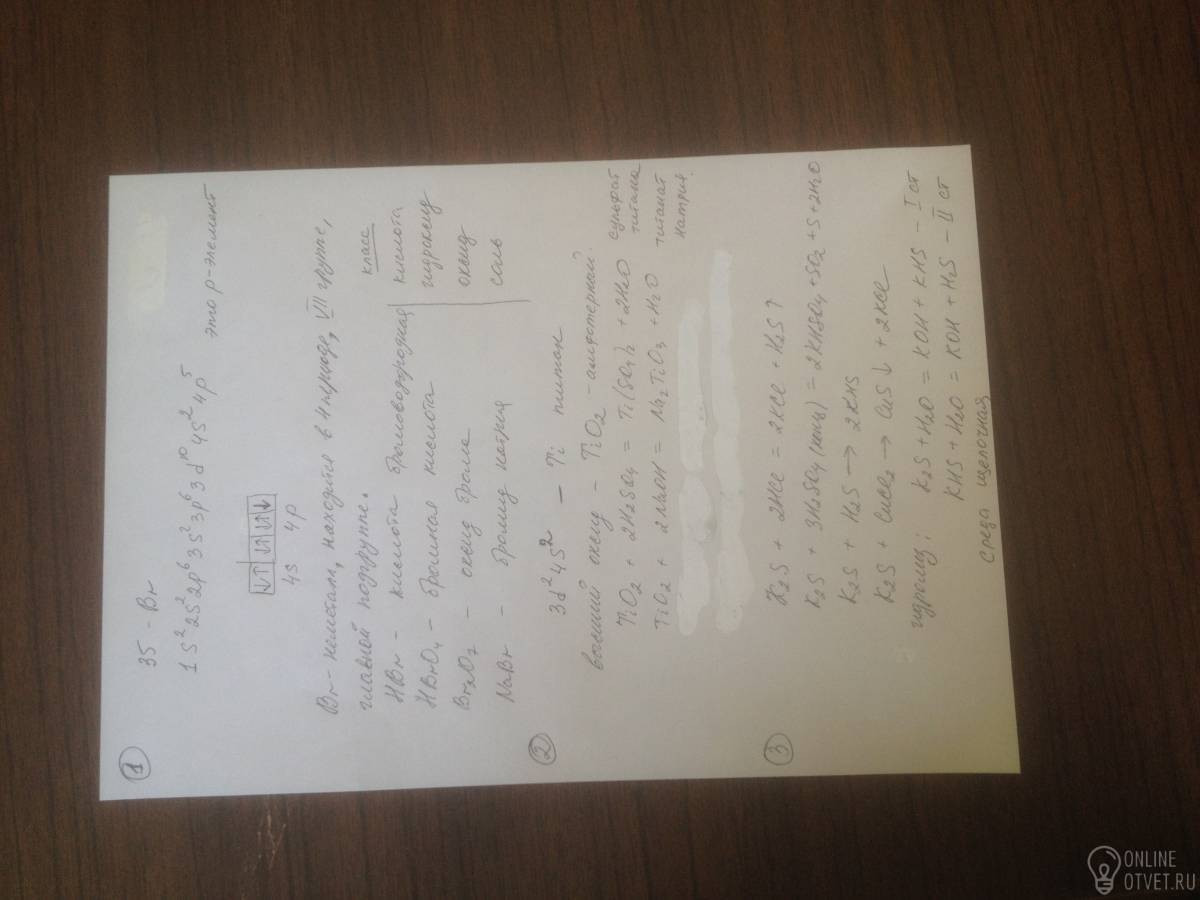 ① 35 - Br
1s² 2s² 2p⁶ 3s² 3p⁶ 3d¹⁰ 4s² 4p⁵ это p-элемент
↓↑ ↓↑ ↓↑ ↓
4s 4p
Br - неметалл, находится в 4 периоде, VII группе,
главной подгруппе. класс
HBr - кислота бромоводородная кислота
HBrO₄ - бромная кислота гидроксид
Br₂O₇ - оксид брома оксид
NaBr - бромид натрия соль
② 3d² 4s² - Ti титан
высший оксид - TiO₂ - амфотерный.
TiO₂ + 2H₂SO₄ = Ti(SO₄)₂ + 2H₂O сульфат титана
TiO₂ + 2NaOH = Na₂TiO₃ + H₂O титанат натрия.
③ K₂S + 2HCl = 2KCl + H₂S↑
K₂S + 3H₂SO₄ (конц) = 2KHSO₄ + SO₂ + S + 2H₂O
K₂S + H₂S → 2KHS
K₂S + CuCl₂ → CuS↓ + 2KCl
гидролиз: K₂S + H₂O = KOH + KHS - I ст
KHS + H₂O = KOH + H₂S - II ст
среда щелочная
ONLINE
OTVET.RU